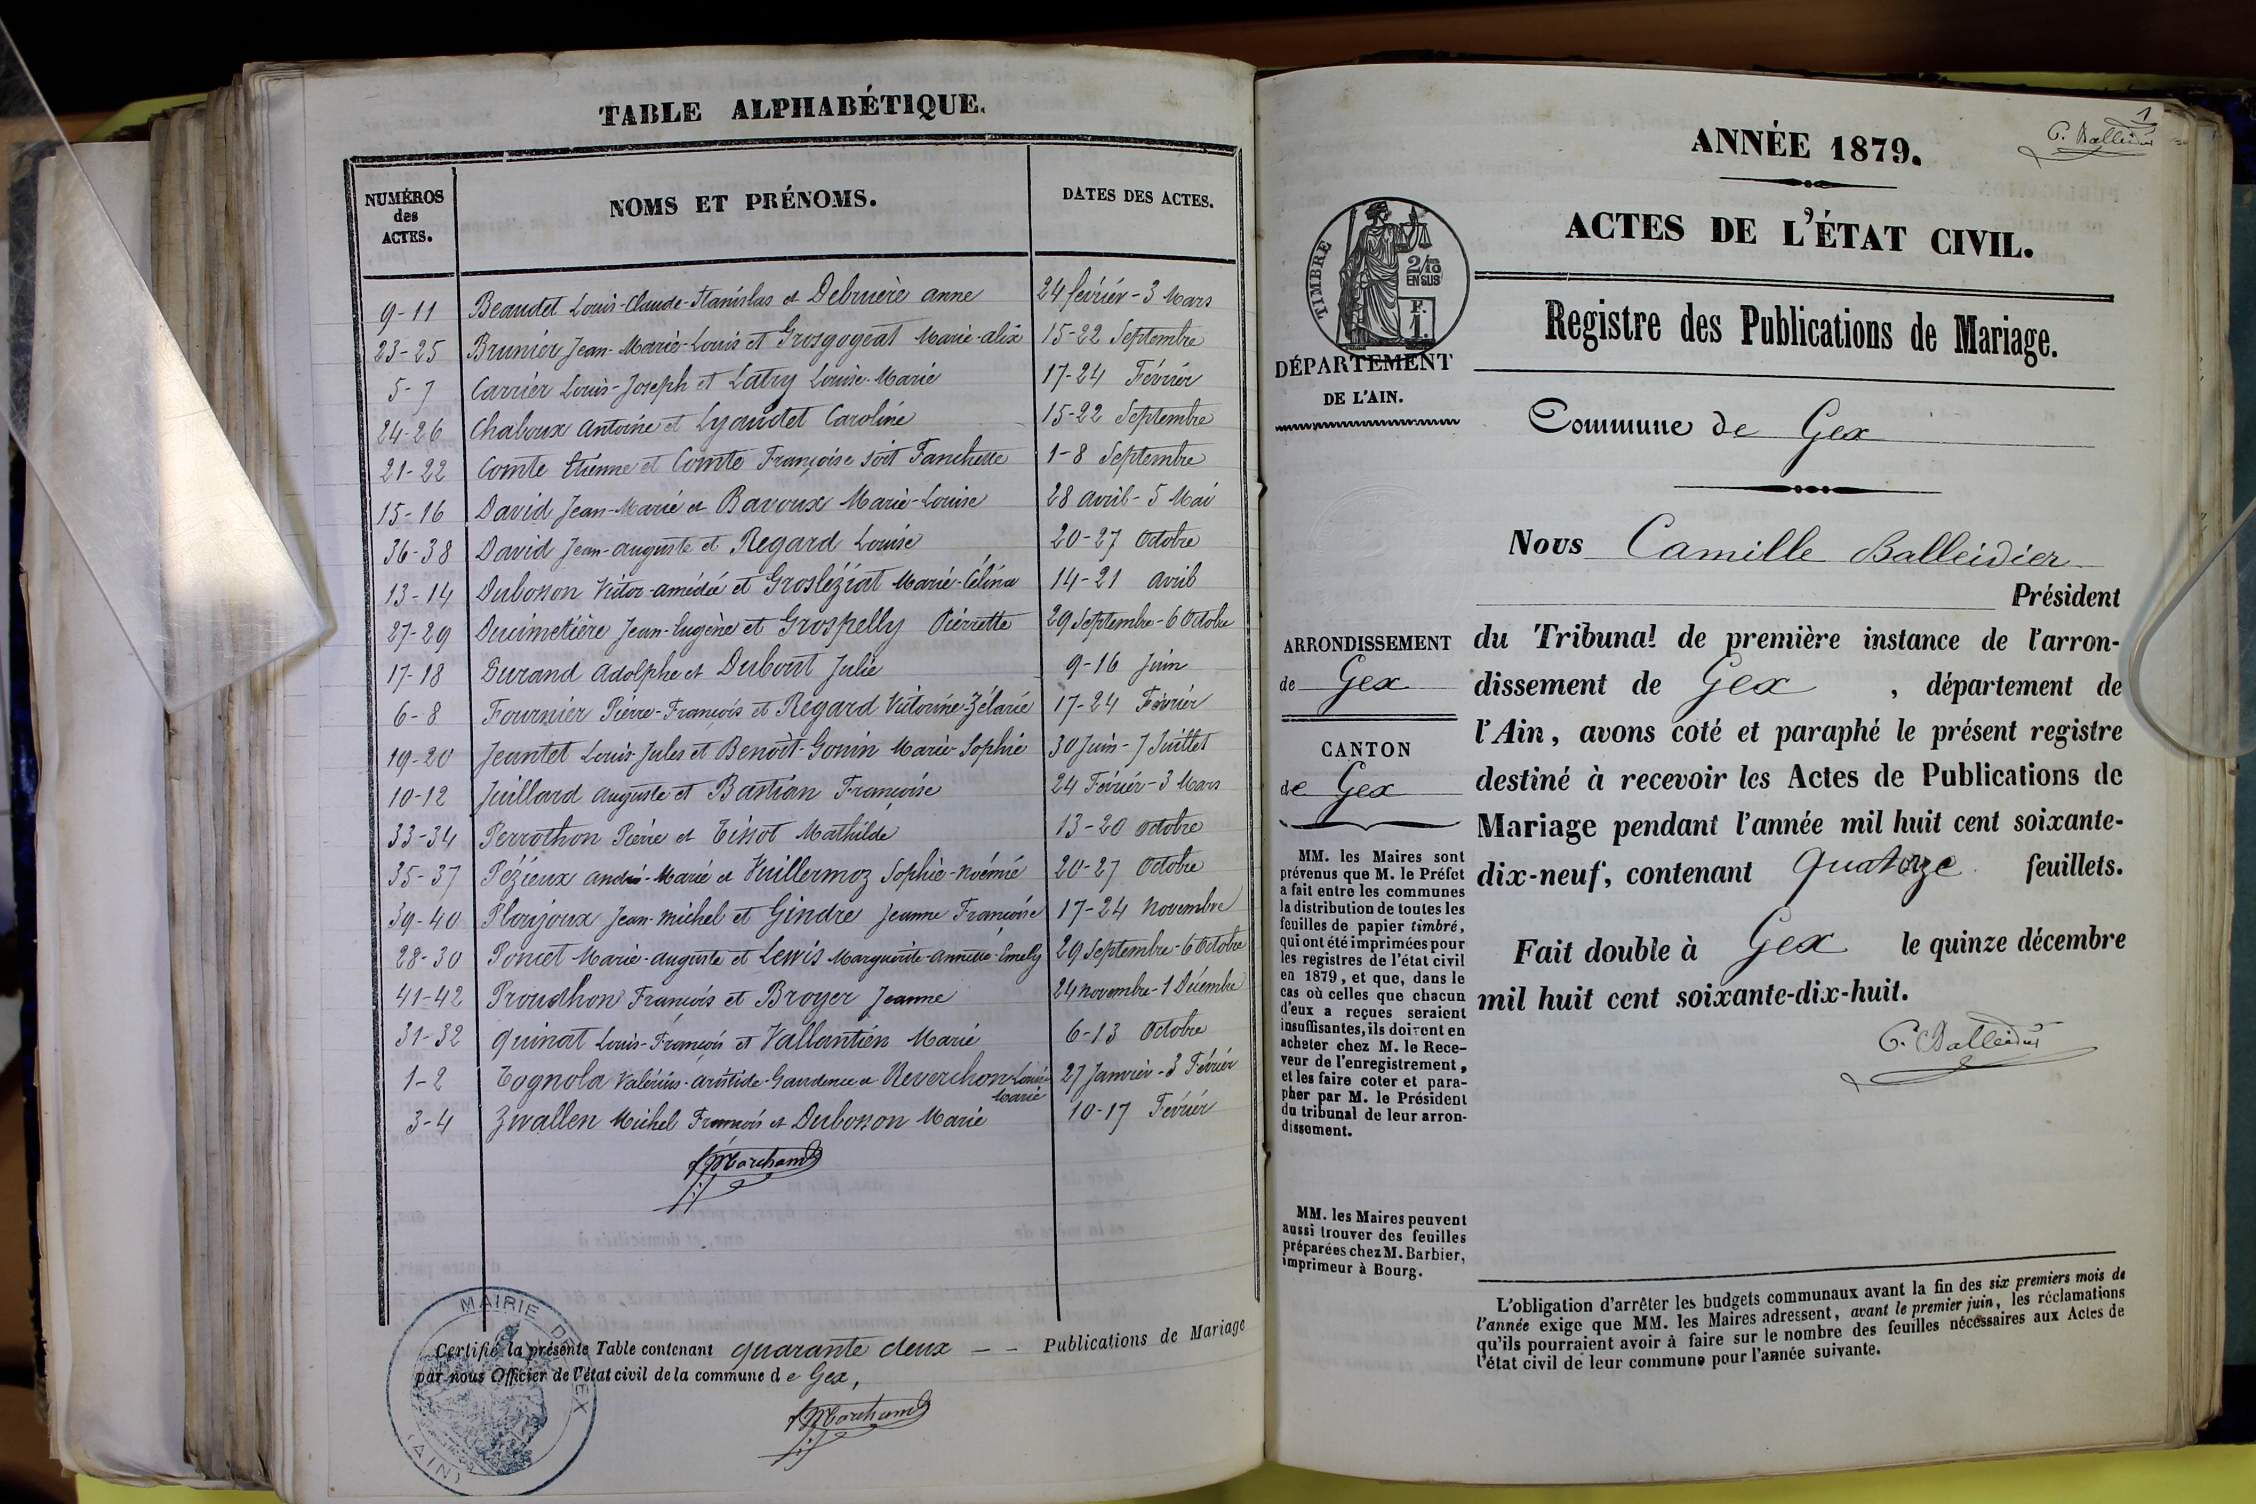 TABLE ALPHABÉTIQUE.
NUMÉROS des ACTES. NOMS ET PRÉNOMS. DATES DES ACTES.
9-11 Beaudet Louis-Claude-Stanislas et Debruère anne 24 février-3 Mars
23-25 Brunier Jean-Marie-Louis et Grosgogeat Marie-alix 15-22 Septembre
5-7 Carrier Louis-Joseph et Latry Louise-Marie 17-24 Février
24-26 Chaboux Antoine et Lyaudet Caroline 15-22 Septembre
21-22 Comte Etienne et Comte Françoise soit Fanchette 1-8 Septembre
15-16 David Jean-Marie et Bavoux Marie-Louise 28 avril-5 Mai
36-38 David Jean-auguste et Regard Louise 20-27 Octobre
13-14 Dubosson Victor-amédée et Grosléziat Marie-Célina 14-21 avril
27-29 Ducimetière Jean-Eugène et Grospelly Pierrette 29 Septembre-6 Octobre
17-18 Durand Adolphe et Dubout Julie 9-16 Juin
6-8 Fournier Pierre-François et Regard Victorine-Zélarie 17-24 Février
19-20 Jeantet Louis-Jules et Benoit-Gonin Marie-Sophie 30 Juin-7 Juillet
10-12 Juillard auguste et Bastian Françoise 24 Février-3 Mars
33-34 Perrothon Pierre et Tissot Mathilde 13-20 octobre
35-37 Pézieux andré-Marie et Vuillermoz Sophie-Noémie 20-27 Octobre
39-40 Ploujoux Jean-Michel et Gindre Jeanne Françoise 17-24 Novembre
28-30 Poncet Marie-auguste et Lewis Marguerite-annette-Emely 29 Septembre-6 Octobre
41-42 Proudhon François et Broyer Jeanne 24 novembre-1 Décembre
31-32 Quinat Louis-François et Vallantien Marie 6-13 Octobre
1-2 Tognola Valérius-aristide-Gaudence et Reverchon Louise Marie 27 Janvier-3 Février
3-4 Zwallen Michel François et Dubosson Marie 10-17 Février
Marchand
Certifié la présente Table contenant quarante deux — — Publications de Mariage
par nous Officier de l'état civil de la commune de Gex,
Marchand
MAIRIE DE GEX (AIN)
1
C. Balleidier
ANNÉE 1879.
ACTES DE L'ÉTAT CIVIL.
TIMBRE
2/10 EN SUS
F. 1.
DÉPARTEMENT
DE L'AIN.
Registre des Publications de Mariage.
Commune de Gex
Nous Camille Balleidier
Président
du Tribunal de première instance de l'arron-
dissement de Gex, département de
l'Ain, avons coté et paraphé le présent registre
destiné à recevoir les Actes de Publications de
Mariage pendant l'année mil huit cent soixante-
dix-neuf, contenant quatorze feuillets.
Fait double à Gex le quinze décembre
mil huit cent soixante-dix-huit.
C. Balleidier
ARRONDISSEMENT
de Gex
CANTON
de Gex
MM. les Maires sont
prévenus que M. le Préfet
a fait entre les communes
la distribution de toutes les
feuilles de papier timbré,
qui ont été imprimées pour
les registres de l'état civil
en 1879, et que, dans le
cas où celles que chacun
d'eux a reçues seraient
insuffisantes, ils doivent en
acheter chez M. le Rece-
veur de l'enregistrement,
et les faire coter et para-
pher par M. le Président
du tribunal de leur arron-
dissement.
MM. les Maires peuvent
aussi trouver des feuilles
préparées chez M. Barbier,
imprimeur à Bourg.
L'obligation d'arrêter les budgets communaux avant la fin des six premiers mois de
l'année exige que MM. les Maires adressent, avant le premier juin, les réclamations
qu'ils pourraient avoir à faire sur le nombre des feuilles nécessaires aux Actes de
l'état civil de leur commune pour l'année suivante.